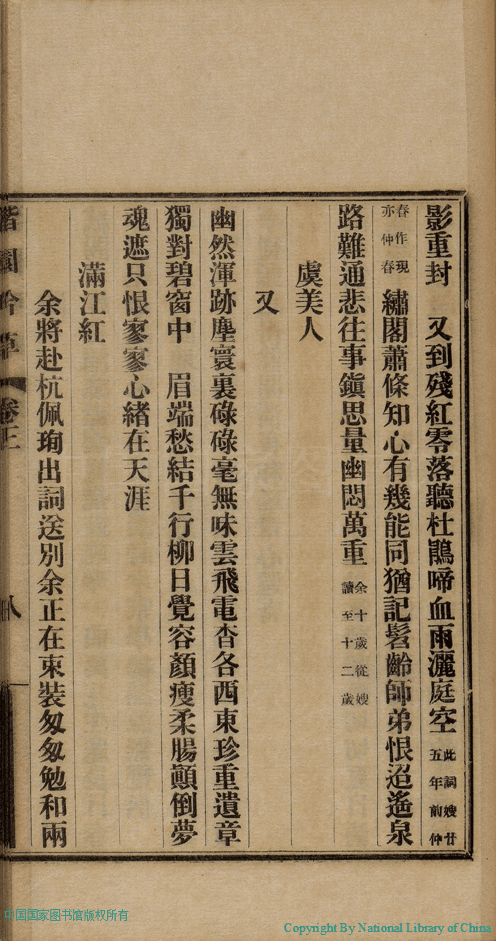 影重封　又到殘紅零落聽杜鵑啼血雨灑庭空此詞嫂廿五年前仲
春作現亦仲春繡閣蕭條知心有幾能同猶記髫齡師弟恨迢遙泉
路難通悲往事鎭思量幽悶萬重余十歲從嫂讀至十二歲
虞美人
又
幽然渾跡塵寰裏碌碌毫無味雲飛電杳各西東珍重遺章
獨對碧窗中　眉端愁結千行柳日覺容顏瘦柔腸顚倒夢
魂遮只恨寥寥心緒在天涯
滿江紅
余將赴杭佩珣出詞送別余正在束裝匆匆勉和兩
吟草
八
中国国家图书馆版权所有
Copyright By National Library of China